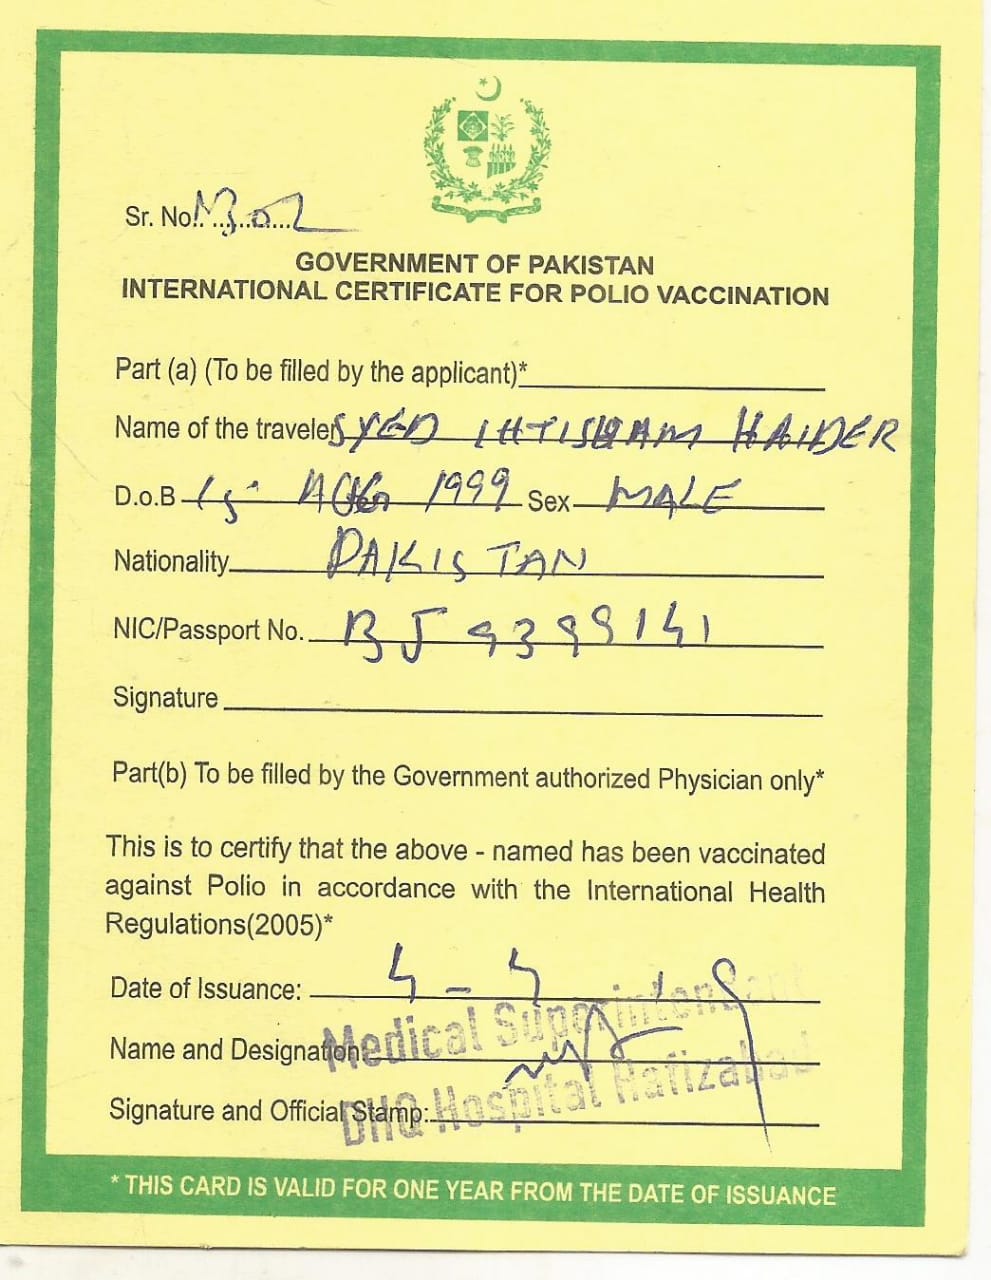 Sr. No.
GOVERNMENT OF PAKISTAN
INTERNATIONAL CERTIFICATE FOR POLIO VACCINATION
Part (a) (To be filled by the applicant)*
Name of the traveler SYED IHTISHAM HAIDER
D.o.B 1999 Sex MALE
Nationality PAKISTAN
NIC/Passport No. BJ 9399141
Signature
Part(b) To be filled by the Government authorized Physician only*
This is to certify that the above - named has been vaccinated
against Polio in accordance with the International Health
Regulations(2005)*
Date of Issuance: 4 - 4
Name and Designation: Medical Superintendent
Signature and Official Stamp: DHQ Hospital Hafizabad
* THIS CARD IS VALID FOR ONE YEAR FROM THE DATE OF ISSUANCE